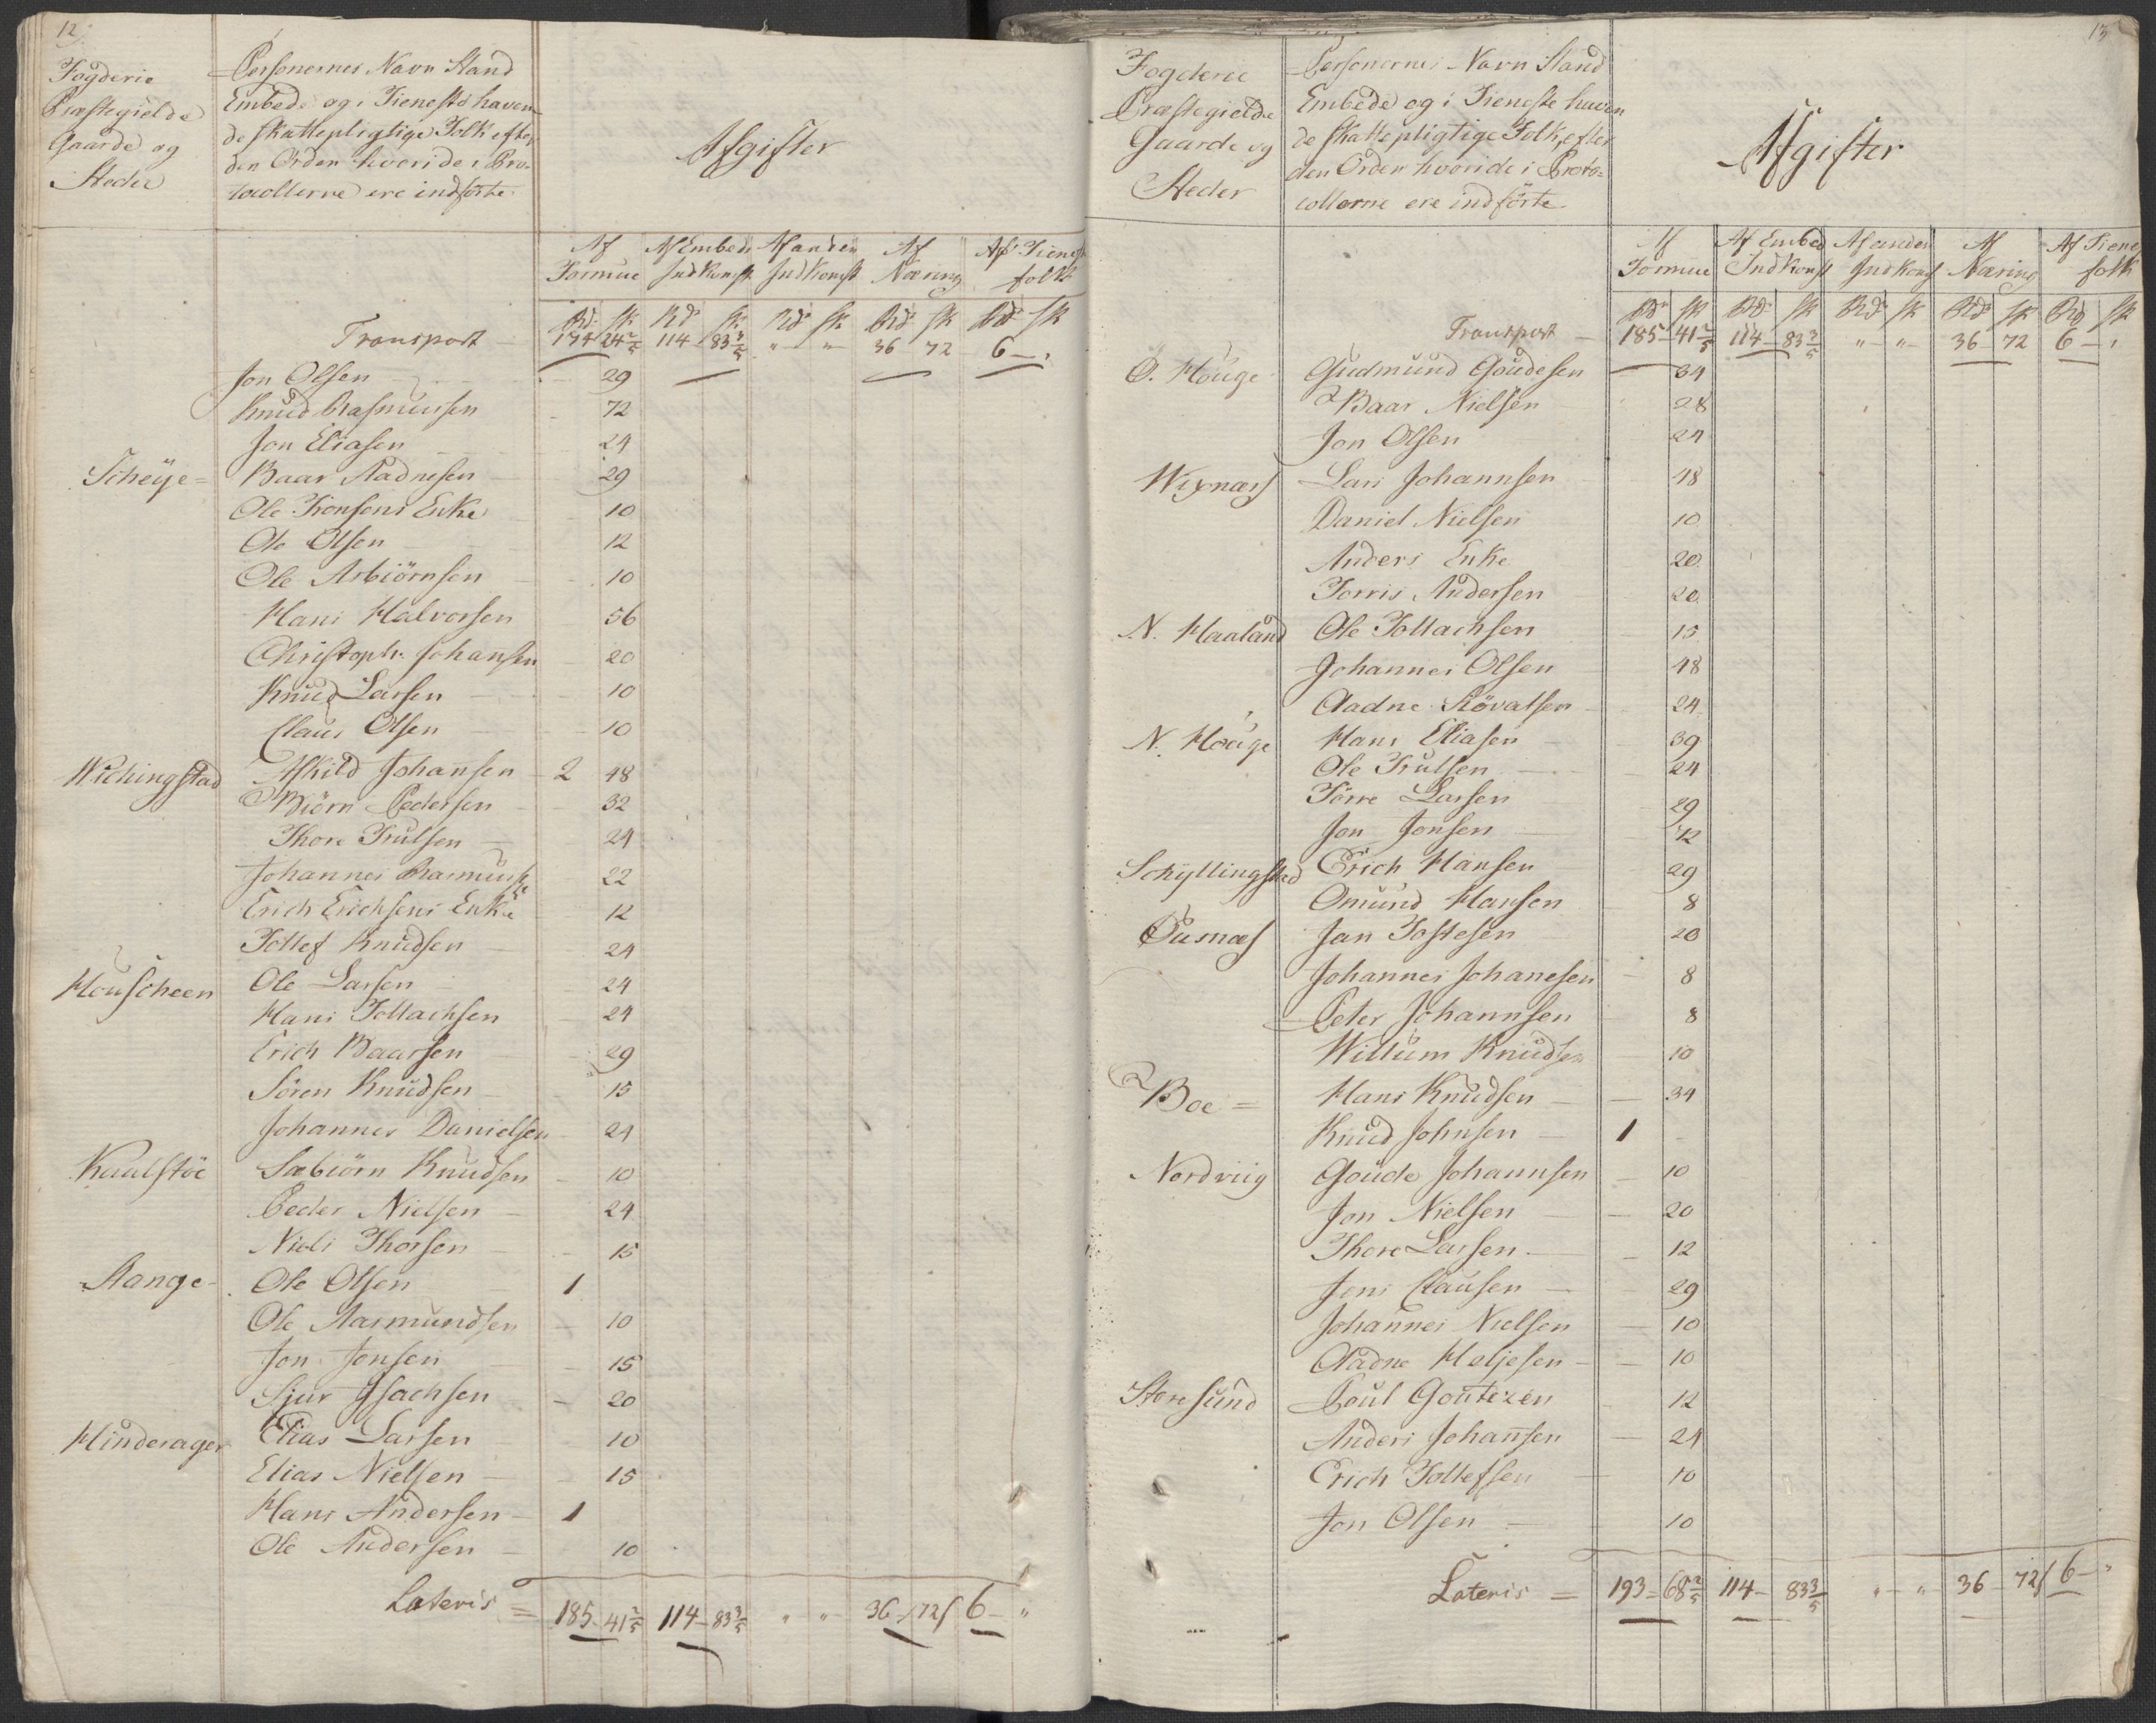 12
Fogderie
Præstegielde
Gaarde og
Steder
Personernes Navn Stand
Embede og i Tieneste haven
de skattepligtige Folk efter
den Orden hvori de i Pro-
tocollerne ere indförte
Afgifter
Af Formue Af Embeds Indkomst Af anden Indkomst Af Næring Af Tieneste folk
Rd. sk Rd. sk. Rd. sk Rd. sk Rd. sk
Transport — 174 24 2/5 114 83 3/5 " " 36 72 6 — "
Jon Olsen — 29
Knud Rasmunsen — 72
Jon Eliasen — 24
Scheye = Baar Aadnesen — 29
Ole Tronsens Enke — 10
Ole Olsen — 12
Ole Asbiörnsen — 10
Hans Halvorsen 56
Christoph. Johansen — 20
Knud Larsen — 10
Claus Olsen — 10
Wichingstad Askild Johansen — 2 48
Biörn Pedersen — 32
Thore Trulsen — 24
Johannes Rasmuse 22
Erich Erichsens Enke — 12
Tollef Knudsen — 24
Houscheen Ole Larsen — 24
Hans Tollachsen 24
Erich Baarsen — 29
Sören Knudsen — 15
Johannes Danielsen 24
Kaalstöe Sæbiörn Knudsen — 10
Peder Nielsen — 24
Niels Thorsen — 15
Stange - Ole Olsen — 1
Ole Aasmundsen — 10
Jon Jonsen — 15
Sjur Isachsen — 20
Hinderager Elias Larsen — 10
Elias Nielsen — 15
Hans Andersen — 1
Ole Andersen — 10
Lateris = 185 - 41 2/5 114 - 83 3/5 " " 36 - 72 6 — "
13
Fogderie
Præstegielde
Gaarde og
Steder
Personernes Navn Stand
Embede og i Tieneste haven
de skattepligtige Folk, efter
den Orden hvori de i Proto-
collerne ere indförte
Afgifter
Af Formue Af Embed Indkomst Af anden Indkomst Af Næring Af Tiene folk
Rd. sk Rd. sk Rd. sk Rd. sk Rd sk
Transport — 185 - 41 2/5 114 - 83 3/5 " - " 36 72 6 - "
Ö. Houge Gudmund Goudesen 34
Baar Nielsen — 28
Jon Olsen 24
Wixnæs Lars Johannsen 48
Daniel Nielsen 10
Anders Enke 20
Torris Andersen 20
N. Haaland Ole Tollachsen — 15
Johannes Olsen 48
Aadne Stövalsen — 24
N. Houge Hans Eliasen — 39
Ole Trulsen — 24
Törre Larsen 29
Jon Jonsen — 12
Schyllingstad Erich Hansen 29
Omund Hansen — 8
Ousnæs Jan Tostesen 20
Johannes Johanesen — 8
Peter Johannsen — 8
Willum Knudsen — 10
Boe = Hans Knudsen — 34
Knud Johnsen — 1 -
Nordviig Goude Johannsen — 10
Jon Nielsen — 20
Thore Larsen — 12
Jens Clausen — 29
Johannes Nielsen — 10
Aadne Heljesen — 10
Storesund Poul Goutezen 12
Anders Johansen — 24
Erich Tollefsen — 10
Jon Olsen — 10
Lateris = 193 - 68 2/5 114 - 83 3/5 " - " 36 - 72 6 — "